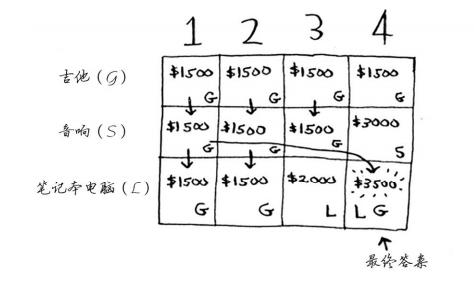 1 2 3 4
吉他 (G) $1500 G $1500 G $1500 G $1500 G
音响 (S) $1500 G $1500 G $1500 G $3000 S
笔记本电脑 (L) $1500 G $1500 G $2000 L $3500 L G
最终答案